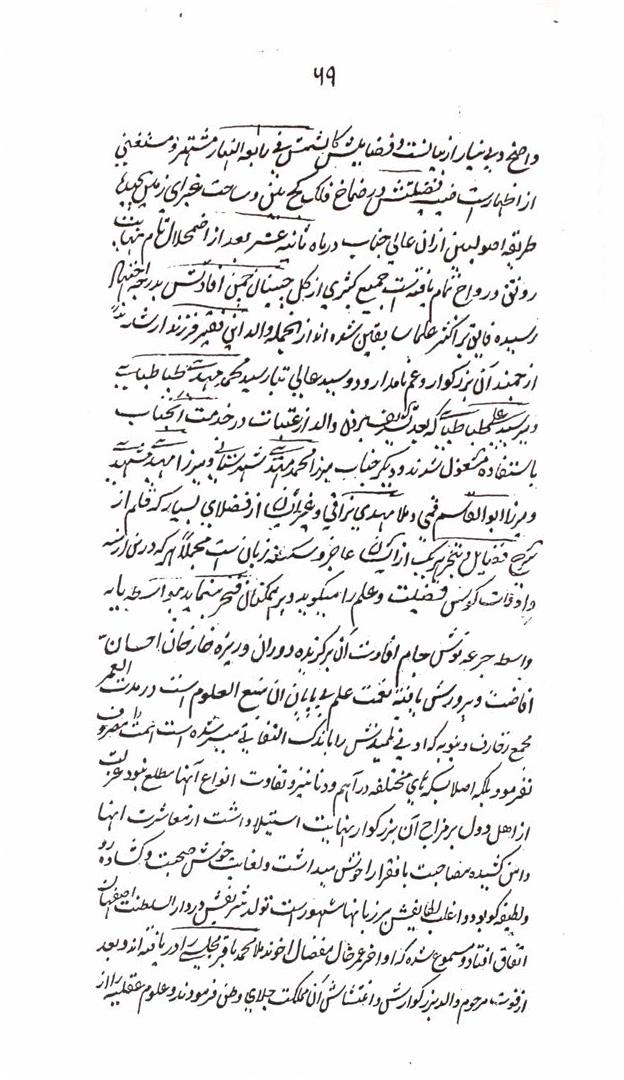 ۶۹
واضح و بی نیاز از بیانست و فضایلش کالشمس فی رابعة النهار مشتهر و مستغنی
از اظهار است صیت فضیلتش در صماخ فلک و ساحت غبرای زمین پیچیده
طریقه اصولیین از آن عالی جناب در ماه ثانیه عشر بعد از اضمحلال تام نهایت
رونق و رواج تمام یافته است جمع کثیری از خوشه چینان خرمن افادتش بدرجه اجتهاد
رسیده فایق بر اکثر علما سابقین شده اند از آنجمله والد این فقیر فرزند ارشد
ارجمند آن بزرگوار و عم نامدار و دو سید عالی تبار سید محمد مهدی طباطبایی
و میر سید علی طباطبایی که بعد تشریف بردن والد از عتبات در خدمت آنجناب
باستفاده مشغول شدند و دیگر جناب میرزا محمد مهدی شهرستانی و میرزا مهدی مشهدی
و میرزا ابوالقاسم قمی و ملا مهدی نراقی و غیر ایشان از فضلای بسیار که قلم از
شرح فضایل و تبحر هریک از ایشان عاجز و شکسته زبان است مجملا هر که درین ازمنه
و اوقات کوس فضیلت و علم را میکوبد و بر همگنان فخر مینماید بواسطه یا به
واسطه جرعه نوش جام افادت آن برگزیده دوران و ریزه خوار خوان احسان
افاضت و پرورش یافته نعمت علم بی پایان آن منبع العلوم است در مدت العمر
بجمع زخارف دنیویه که ادنی تلمیذش را باندک التفاتی میسر شده است همت مصروف
نفرمود بلکه اصلا بسکه های مختلفه دراهم و دنانیر و تفاوت انواع آنها مطلع نبود عزلت
از اهل دول بر مزاج آن بزرگوار بنهایت استیلا داشت از معاشرت آنها
دامن کشیده مصاحبت با فقرا را خوش میداشت و بغایت خوش صحبت و گشاده رو
و لطیفه گو بود و اغلب لطایفش بر زبانها مشهور است تولد شریفش در دار السلطنت اصفهان
اتفاق افتاد و مسموع شده که اواخر عمر خال مفضال آخوند ملا محمد باقر مجلسی را دریافته اند و بعد
از فوت مرحوم والد بزرگوارش و اغتشاش آن مملکت جلای وطن فرمودند و علوم عقلیه را از